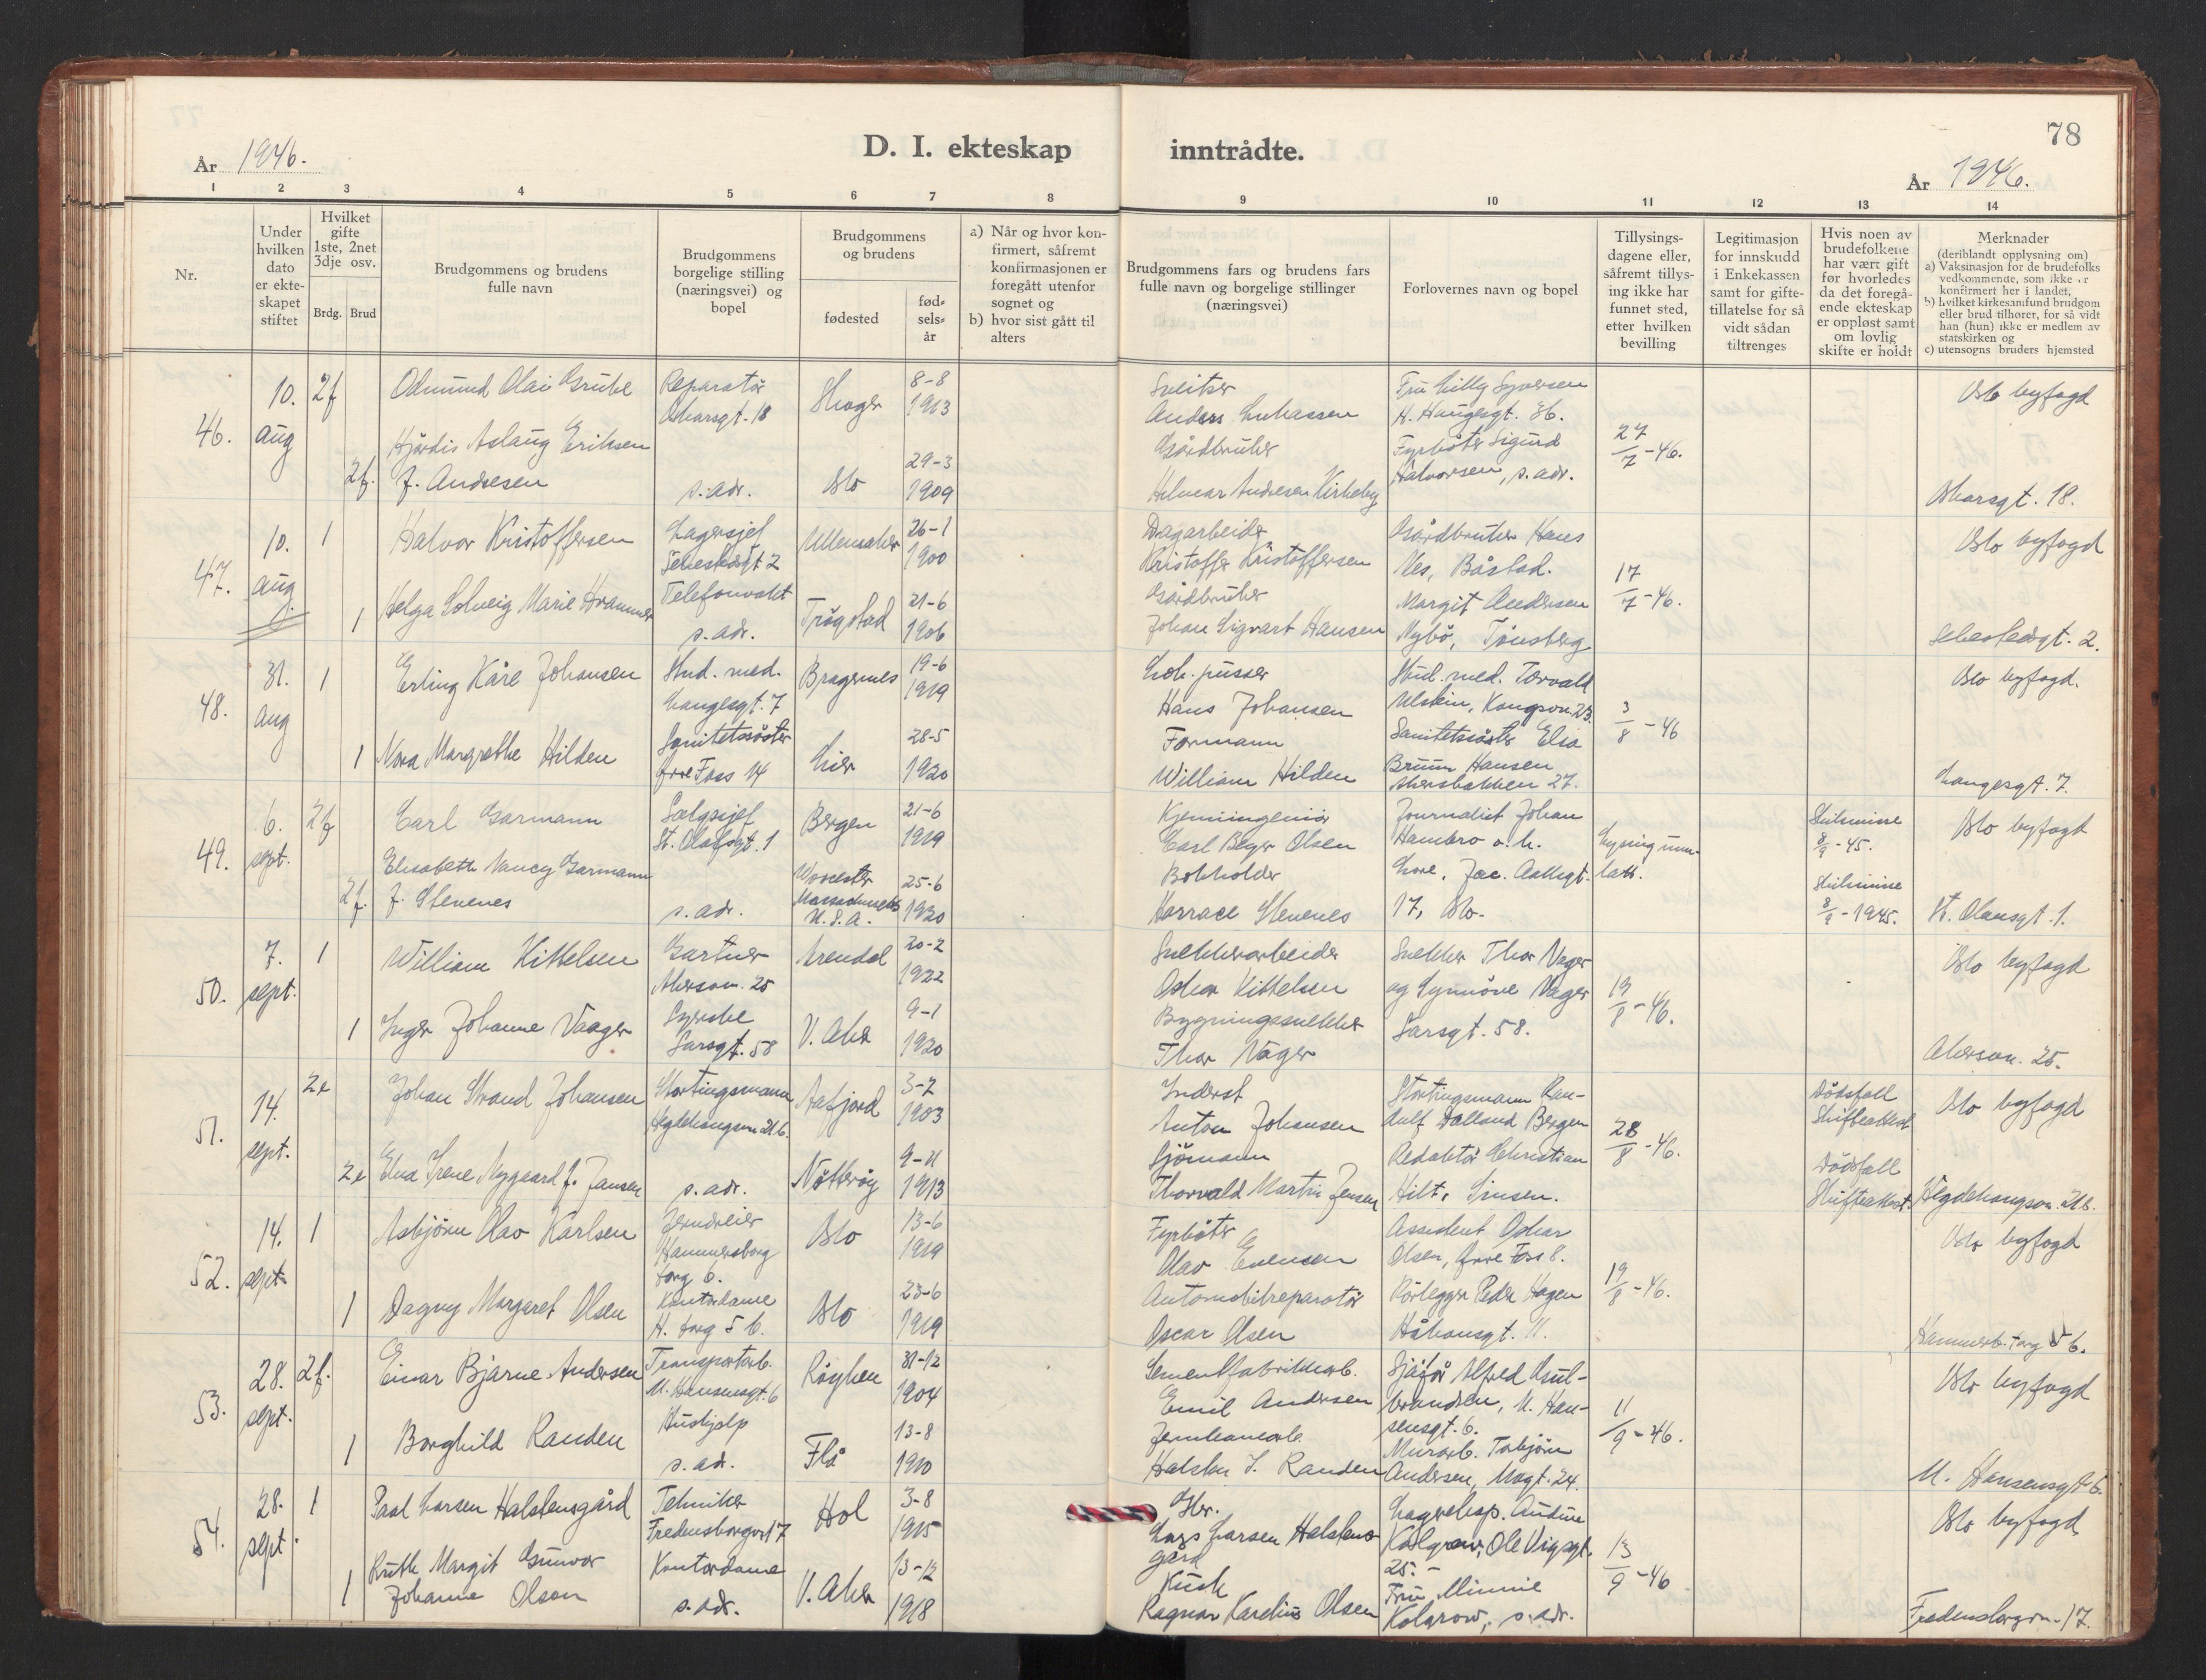 78
År 1946.
D. I. ekteskap inntrådte.
År 1946.
1 2 3 4 5 6 7 8 9 10 11 12 13 14
Nr.
Under hvilken dato er ekteskapet stiftet
Hvilket gifte 1ste, 2net 3dje osv.
Brdg. Brud
Brudgommens og brudens fulle navn
Brudgommens borgelige stilling (næringsvei) og bopel
Brudgommens og brudens
fødested
fødselsår
a) Når og hvor konfirmert, såfremt konfirmasjonen er foregått utenfor sognet og
b) hvor sist gått til alters
Brudgommens fars og brudens fars fulle navn og borgelige stillinger (næringsvei)
Forlovernes navn og bopel
Tillysingsdagene eller, såfremt tillysing ikke har funnet sted, etter hvilken bevilling
Legitimasjon for innskudd i Enkekassen samt for giftetillatelse for så vidt sådan tiltrenges
Hvis noen av brudefolkene har vært gift før hvorledes da det foregående ekteskap er oppløst samt om lovlig skifte er holdt
Merknader
(deriblandt opplysning om)
a) Vaksinasjon for de brudefolks vedkommende, som ikke er konfirmert her i landet,
b) hvilket kirkesamfund brudgom eller brud tilhører, for så vidt han (hun) ikke er medlem av statskirken og
c) utensogns bruders hjemsted
46. 10. aug 2f Odmund Olai Grube Reparatör Oskarsgt. 18 Skoger 8-8 1913
Anders Lukassen
Fru Lilly Syversen
H. Haugesgt. 36.
27/7-46.
Oslo byfogd
2f. Hjördis Aslaug Eriksen
f. Andresen
s. adr. Oslo 29-3 1909
Gårdbruker
Hilmar Andresen Kirkeby
Fyrböter Sigurd
Halvorsen, s. adr.
Oskarsgt. 18.
47. 10. aug. 1 Halvor Kristoffersen Lagersjef
Sehestedsgt 2 Ullensaker 26-1 1900
Dagarbeider
Kristoffer Kristoffersen
Gårdbruker Hans
Nes, Båstad.
17/7-46.
Oslo byfogd
1 Helga Solveig Marie Telefonvakt
s. adr. Trögstad 21-6 1906
Gårdbruker
Johan Sigvart Hansen
Margit Andersen
Nybö, Tönsberg
Sehestedsgt. 2.
48. 31. aug 1 Erling Kåre Johansen Stud. med.
Langesgt. 7 Bragernes 19-6 1919
Lok. pusser
Hans Johansen
Stud. med. Torvald
Ulstein,
3/8-46
Oslo byfogd.
1 Nora Margrethe Hilden Sanitetssöster
Övre Foss 14 Lier 28-5 1920
Formann
William Hilden
Sanitetssöster Elsa
Bruun Hansen
Akersbakken 27.
Langesgt. 7.
49. 6. sept. 2f Carl Garmann Salgssjef
St. Olafsgt. 1 Bergen 21-6 1919
Kjemiingeniör
Carl Beyer Olsen
Journalist Johan
Hambro o.h.
Lysing unnlatt.
Skilsmisse
8/9-45.
Oslo byfogd
2f. Elisabeth Nancy Garmann
f. Stevenes
s. adr. Worcester
Massachusetts
U.S.A. 25-6 1920
Bokholder
Horrace Stevenes
Lore, Jac. Aallsgt.
17, Oslo.
Skilsmisse
8/9-1945.
St. Olausgt. 1.
50. 7. sept. 1 William Kittelsen Gartner
Akersvn. 25 Arendal 20-2 1922
Snekkerarbeider
Oskar Kittelsen
Snekker Thor Våger
og Synnöve Våger
Sarsgt. 58.
19/8-46.
Oslo byfogd
1 Inger Johanne Vaager Syerske
Sarsgt. 58 V. Aker 9-1 1920
Bygningssnekker
Thor Våger
Akersvn. 25.
51. 14. sept. 2e Johan Strand Johansen Stortingsmann
Hegdehaugsvn 21b. Aafjord 3-2 1903
Inderst
Anton Johansen
Stortingsmann Randulf Dalland Bergen
28/8-46.
Dödsfall
Skifteattest
Oslo byfogd
2e Elna Irene Nygaard f. Jansen s. adr. Nötteröy 9-11 1913
Sjömann
Thorvald Martin Jensen
Redaktör Christian
Hilt, Sinsen.
Dödsfall
Skifteattest.
Hegdehaugsvn. 21b.
52. 14. sept. 1 Asbjörn Olav Karlsen
Hammersborg
torg 6. Oslo 13-6 1919
Fyrböter
Olav Evensen
Assistent Oskar
Olsen, Övre Foss 8.
19/8-46.
Oslo byfogd
1 Dagny Margaret Olsen Kontordame
H. torg 5 b. Oslo 23-6 1919
Automobilreparatör
Oscar Olsen
Rörlegger Peder Hagen
Håkonsgt. 11.
Hammerb. torg 5 b.
53. 28. sept. 2f. Einar Bjarne Andersen Transportarb.
M. Hansensgt. 6 Röyken 31-12 1904
Sementfabrikkarb.
Emil Andersen
Sjåför Alfred Gulbrandsen, M. Hansensgt. 6.
11/9-46.
Oslo byfogd
1 Borghild Randen Hushjelp
s. ad. Flå 13-8 1910
Jernbanearb.
Halsten S. Randen
Murarb. Torbjörn
Andersen,
M. Hansensgt 6.
54. 28. sept. 1 Paal Larsen Halstensgård Tekniker
Fredensborgvn 17 Hol 3-8 1915
Gbr.
Lars Larsen Halstensgård
Lagereksp.
Ole Vigsgt.
25.
13/9-46
Oslo byfogd
1 Ruth Margit Gunvor
Johanne Olsen Kontordame
s. adr. V. Aker 13-12 1918
Kusk
Ragnar Karelius Olsen
Fru Minnie
Kolgrow, s. adr.
Fredensborgvn. 17.